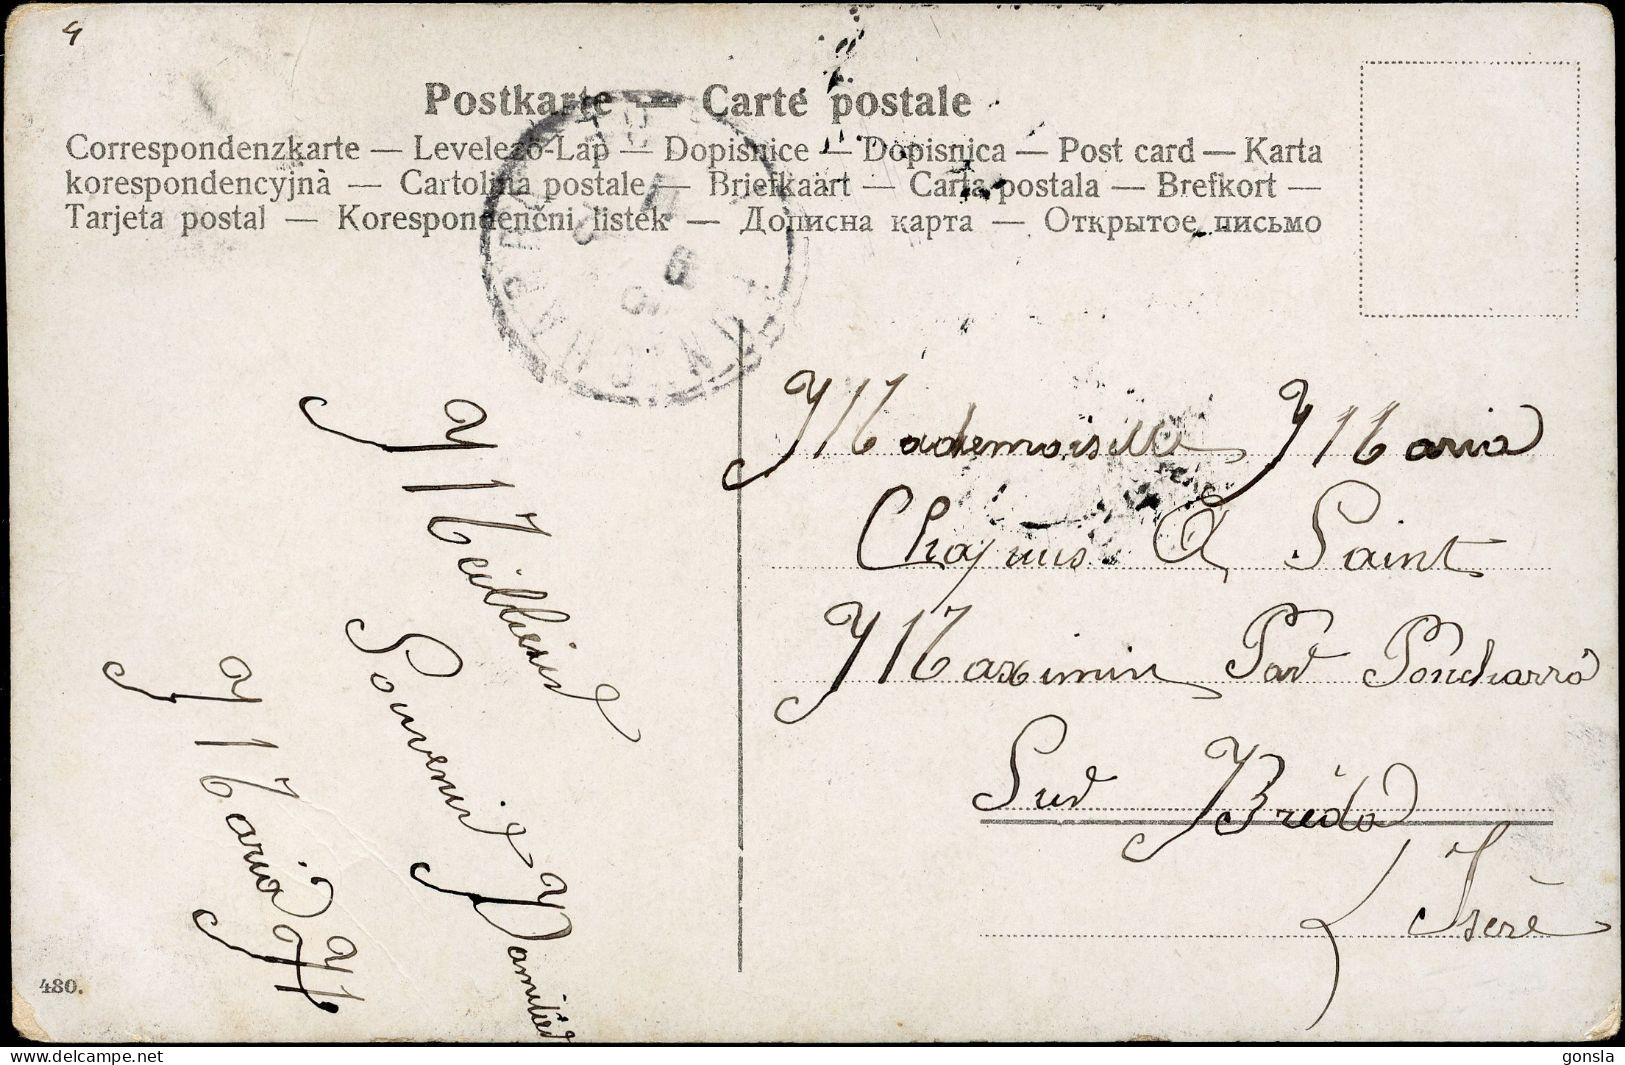 4
Postkarte — Carte postale
Correspondenzkarte — Levelező-Lap — Dopisnice — Dopisnica — Post card — Karta
korespondencyjnà — Cartolina postale — Briefkaart — Carta postala — Brefkort —
Tarjeta postal — Korespondenčni listek — Дописна карта — Открытое письмо
PONTCHARRA
Mademoiselle Maria
Chapuis A Saint
Maximin Par Poncharra
Sur Bréda
Isère
Meilleur
Souvenir D'amitié
Maria H
480.
gonsla